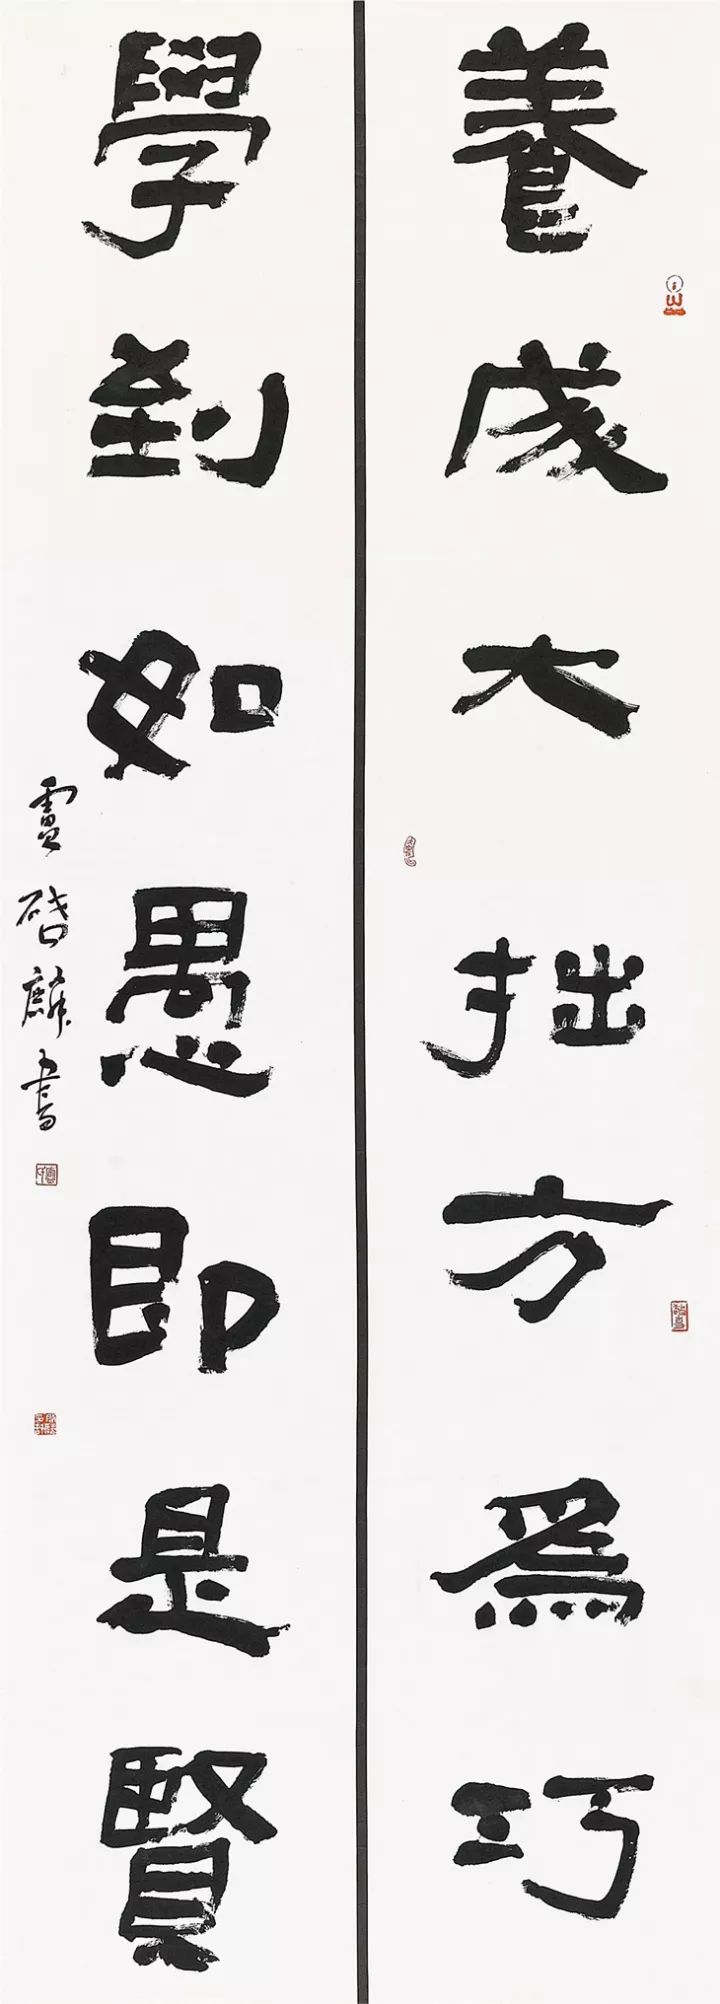 養成大拙方為巧
學到如愚即是賢
啓麟書